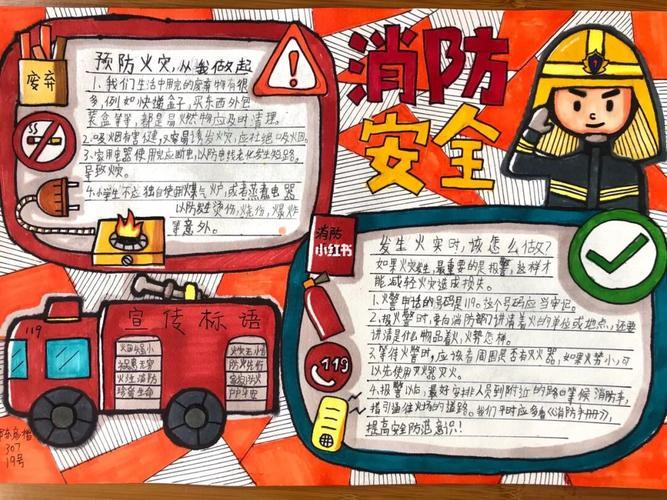 消防
安全
废弃
预防火灾,从我做起
1、我们生活中用完的废弃物有很
多,例如快递盒子,买东西外包
装盒等等,都是易燃物应及时清理。
2.吸烟有害健康,容易诱发火灾,应杜绝吸火因。
3、家用电器使用完应断电,以防电线老化发生短路,
导致火灾。
4.小学生不应独自使用煤气炉,或者蒸煮电器
以防发生烫伤,烧伤,爆炸
等意外。
消防
小红书
119
发生火灾时,该怎么做?
如果火灾发生,最重要的是报警,这样才
能减轻火灾造成损失。
1、火警电话的号码是119。这个号码应当牢记。
2、报火警时,要向消防部门讲清着火的单位或地点,还要
讲清是什么物品着火,火势怎样。
3、等待火警时,应该看周围是否有灭火器,如果火势小,可
以先使用灭器灭火。
4、报警以后,最好安排人员到附近的路口等候消防车,
指引通往火场的道路。我们平时应多看《消防手册》,
提高安全防范意识!
宣传标语
119
火灾无小
隐患
火灶消防
防火先行
珍爱生命
307
19号